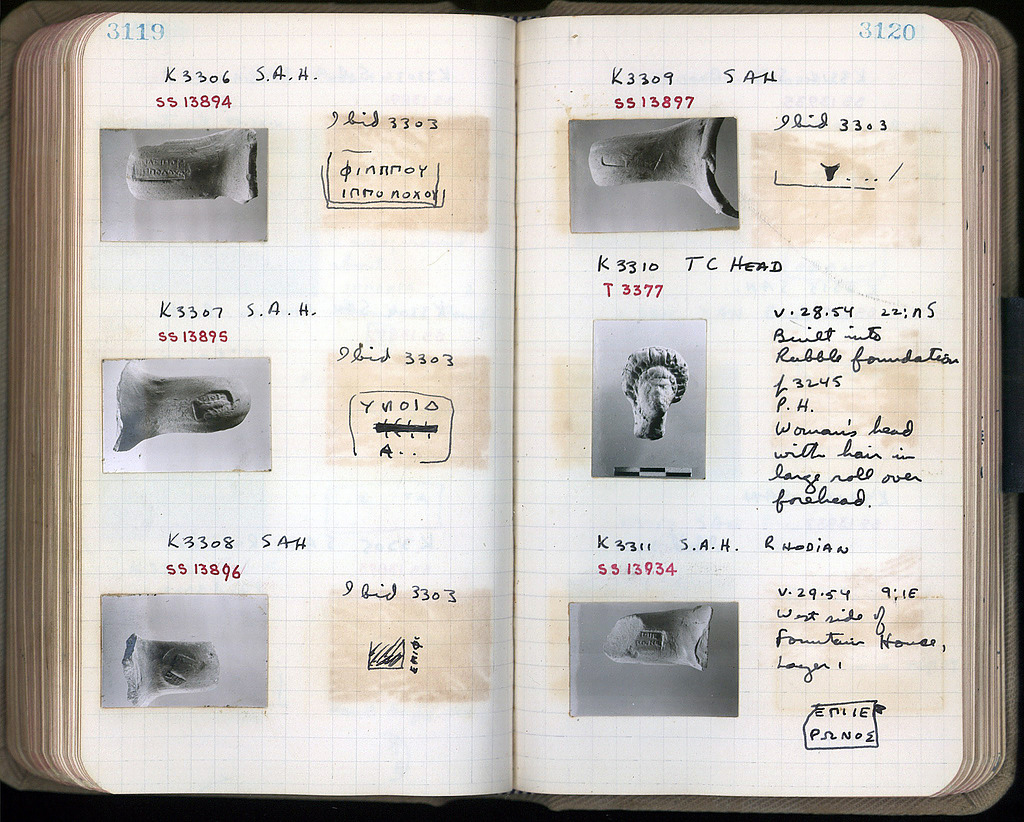 3119
K3306 S.A.H.
SS 13894
Ibid 3303
ΦΙΛΠΠΟΥ
ΙΠΠΟΛΟΧΟΥ
K3307 S.A.H.
SS 13895
Ibid 3303
Α..
K3308 SAH
SS 13896
Ibid 3303
3120
K3309 SAH
SS 13897
Ibid 3303
K3310 TC HEAD
T 3377
V.28.54
Built into
Rubble foundation
3245
P.H.
Woman's head
with hair in
large roll over
forehead.
K3311 S.A.H. RHODIAN
SS 13934
V.29.54
West side of
Fountain House,
Layer 1
ΕΠΙΙΕ
ΡΩΝΟΣ